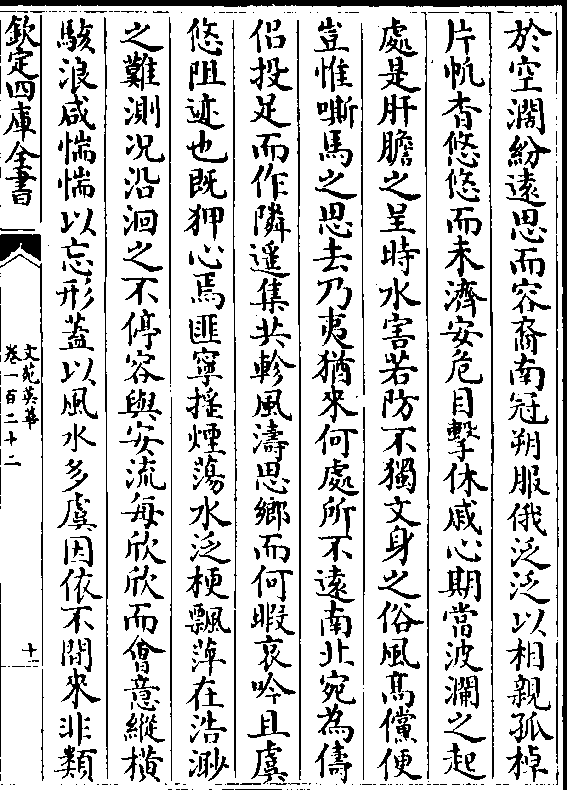 於空濶紛遠思而容裔南冠朔服俄泛泛以相親孤棹
片帆杳悠悠而未濟安危目擊休戚心期當波瀾之起
處是肝膽之呈時水害若防不獨文身之俗風高儻便
豈惟嘶馬之思去乃夷猶來何處所不遠南北宛為儔
侣投足而作隣遥集共軫風濤思鄉而何暇哀吟且虞
悠阻迹也既狎心焉匪寧揺煙蕩水泛梗飄萍在浩渺
之難測况沿洄之不停容與安流每欣欣而會意縱横
駭浪咸惴惴以忘形蓋以風水多虞因依不間來非類
欽定四庫全書
文苑英華
卷一百二十二
十一